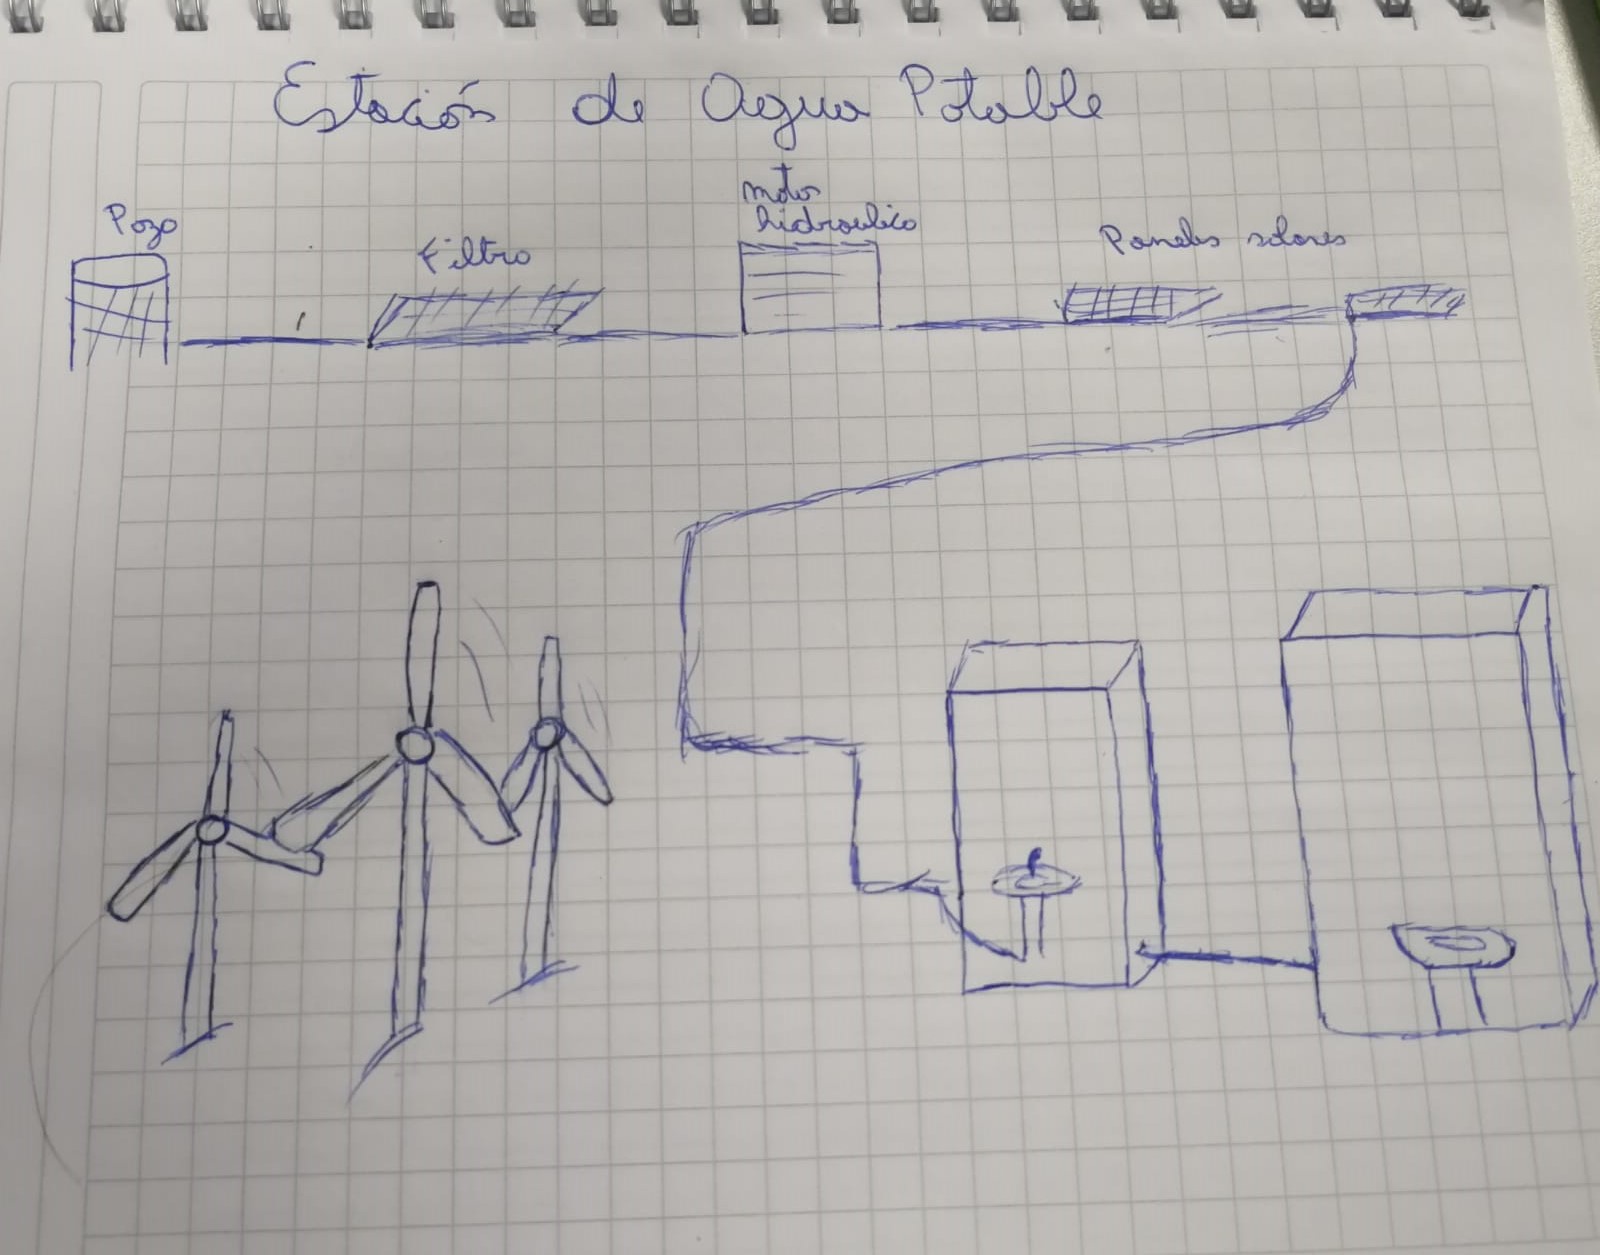 Estación de Agua Potable
Pozo
Filtro
motor
hidroulico
Paneles solares